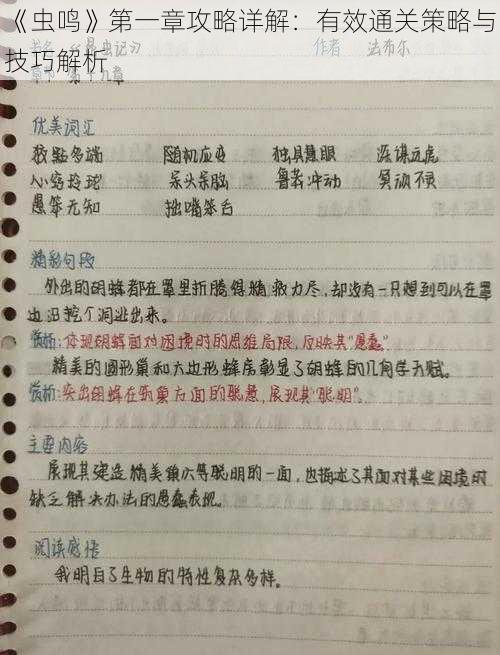 《虫鸣》第一章攻略详解：有效通关策略与
技巧解析
作者 法布尔
优美词汇
狡黠多端 随机应变 独具慧眼 深谋远虑
心窍玲珑 呆头呆脑 鲁莽冲动 冥顽不灵
愚笨无知 拙嘴笨舌
精彩句段
外出的胡蜂都在罩里折腾得精疲力尽，却没有一只想到可以在罩
边沿挖个洞逃出来。
赏析：体现胡蜂面对困境时的思维局限，反映其“愚蠢”
精美的圆形巢和六边形蜂房彰显了胡蜂的几何学天赋。
赏析：突出胡蜂在筑巢方面的聪慧，展现其“聪明”
主要内容
展现其建造精美巢穴等聪明的一面，也描述了其面对某些困境时
缺乏解决办法的愚蠢表现。
阅读感悟
我明白了生物的特性复杂多样。